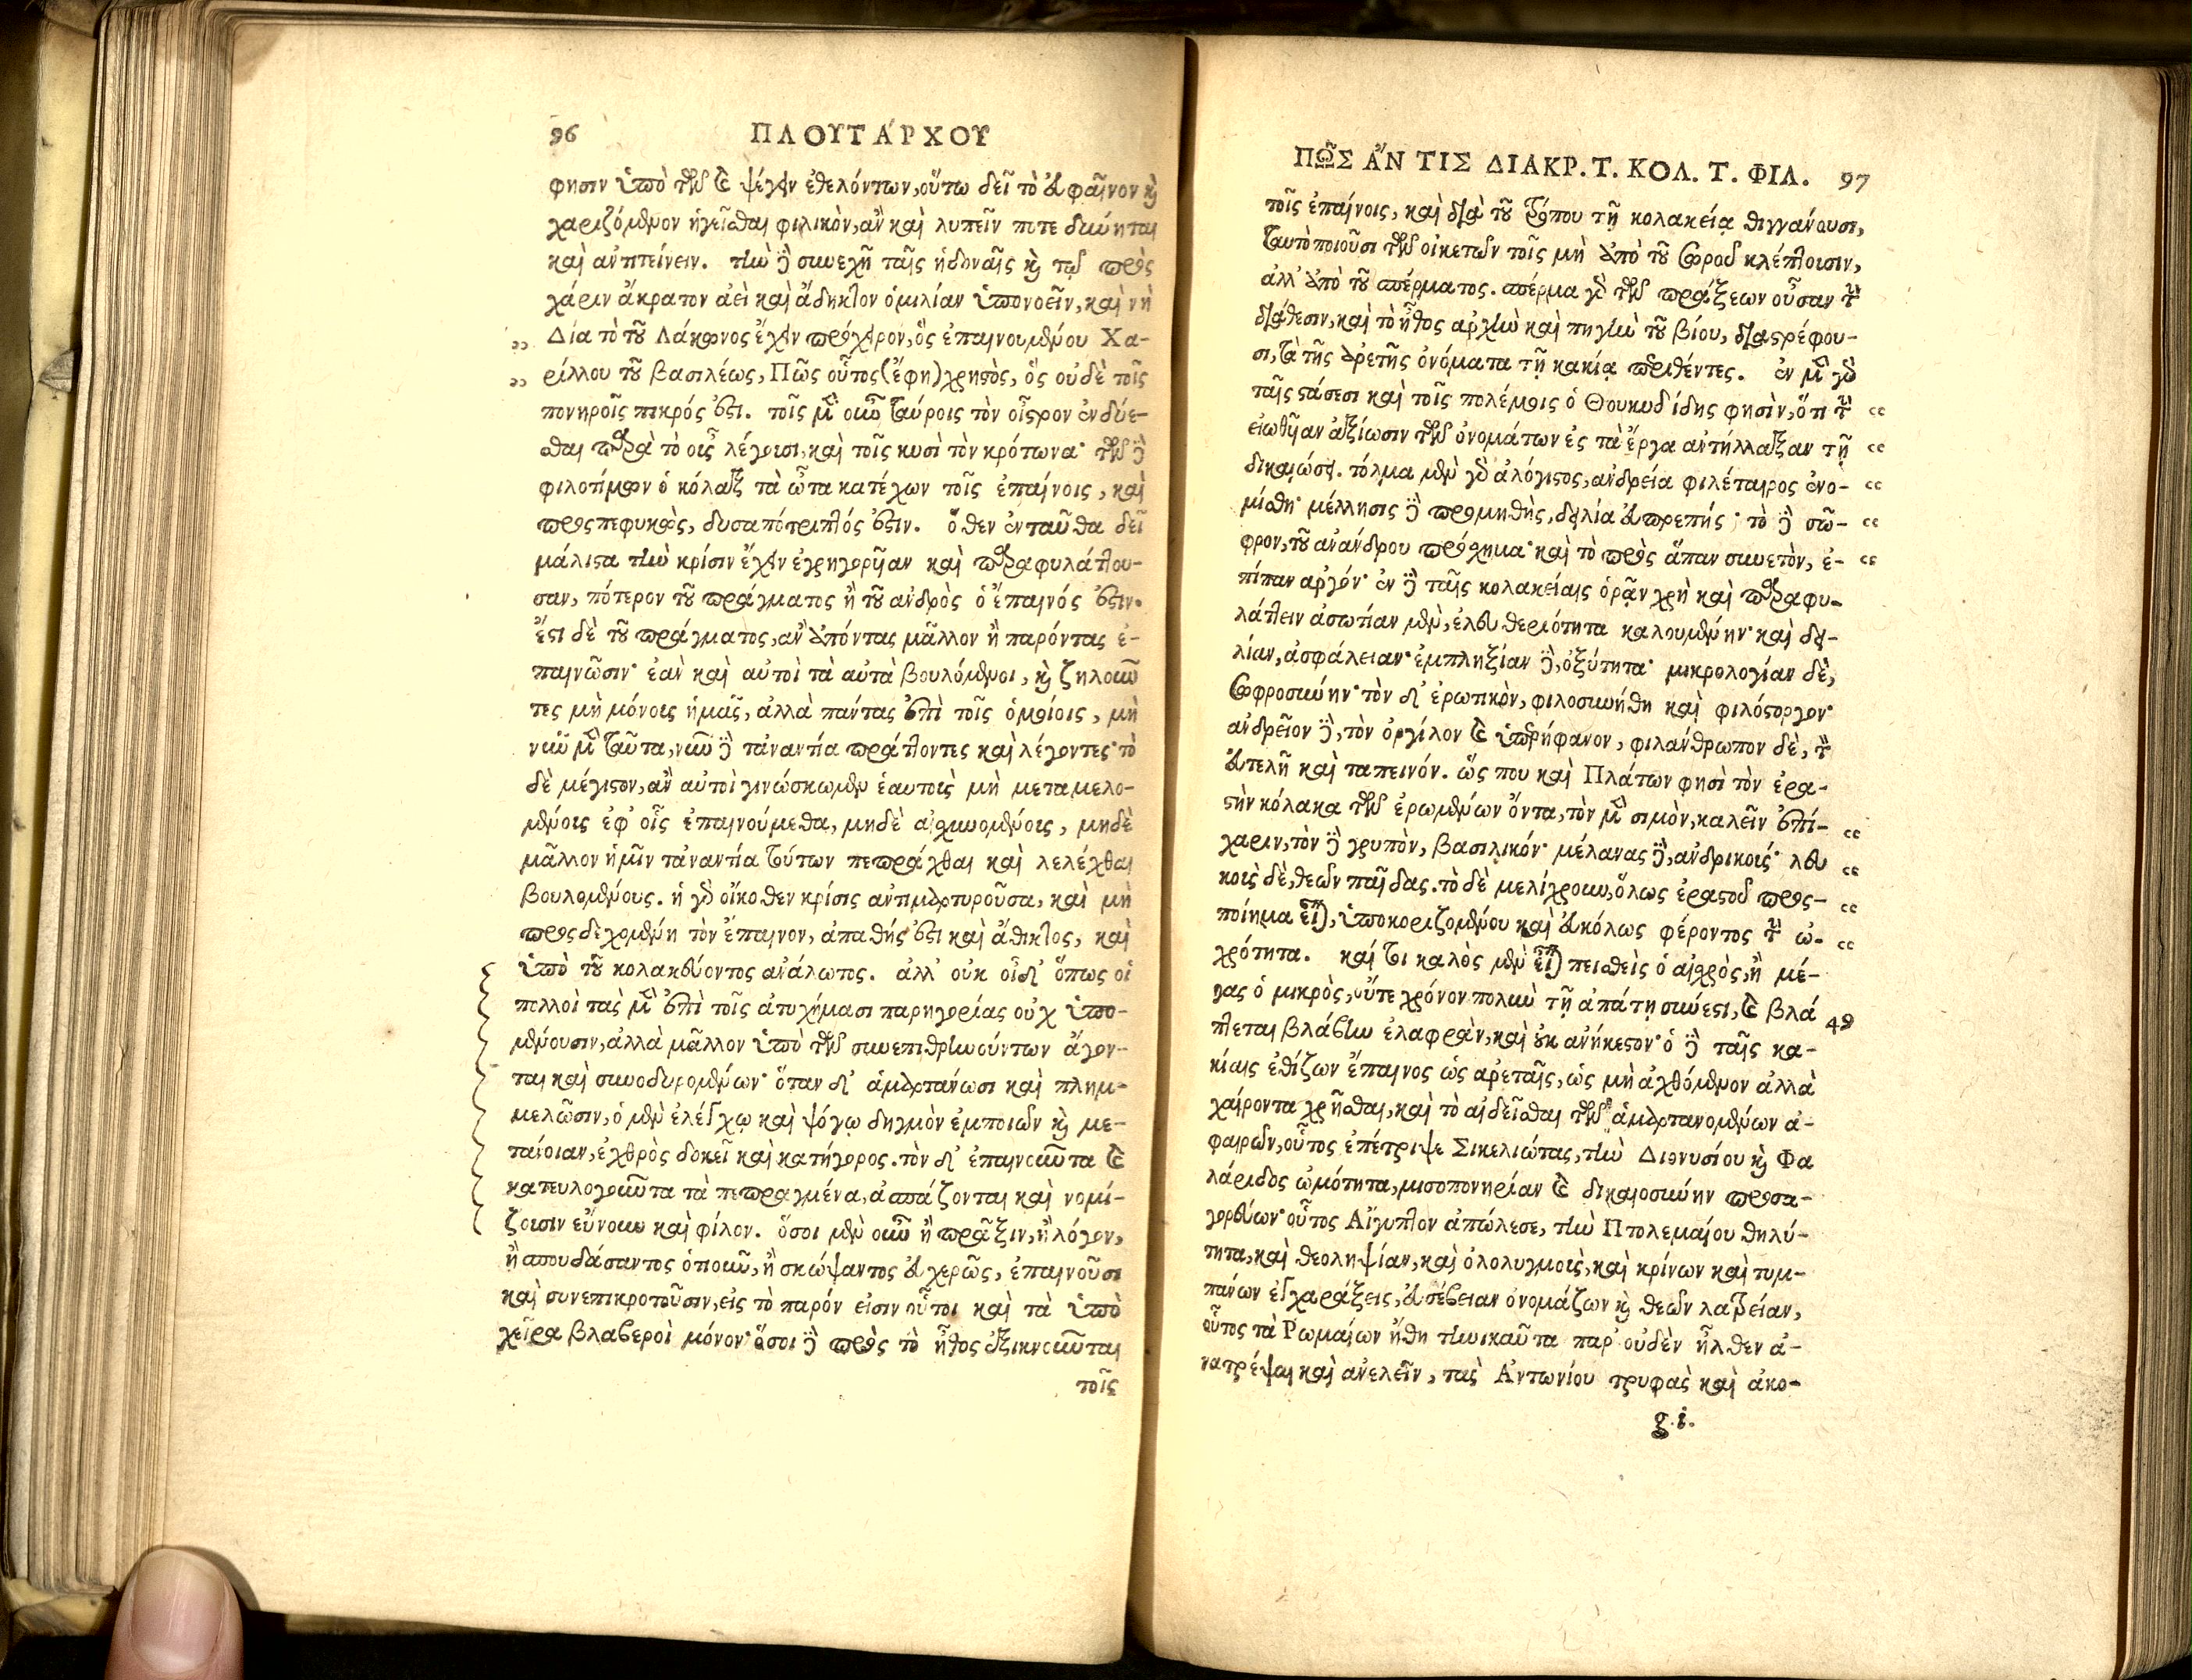 96 ΠΛΟΥΤΑΡΧΟΥ
φησιν ὑπὸ τῶν καὶ ψέγειν ἐθελόντων, οὕτω δεῖ τὸ εὐφραῖνον καὶ
χαριζόμενον ἡγεῖσθαι φιλικὸν, ἂν καὶ λυπεῖν ποτε δύνηται
καὶ ἀντιτείνειν. τὴν δὲ συνεχῆ ταῖς ἡδοναῖς καὶ τῷ πρὸς
χάριν ἄκρατον ἀεὶ καὶ ἄδηκτον ὁμιλίαν ὑπονοεῖν, καὶ νὴ
„ Δία τὸ τοῦ Λάκωνος ἔχειν πρόχειρον, ὃς ἐπαινουμένου Χα-
„ ρίλλου τοῦ βασιλέως, Πῶς οὗτος (ἔφη) χρηστὸς, ὃς οὐδὲ τοῖς
πονηροῖς πικρός ἐστι. τοῖς μὲν οὖν ταύροις τὸν οἶστρον ἐνδύε-
σθαι παρὰ τὸ οὖς λέγουσι, καὶ τοῖς κυσὶ τὸν κρότωνα· τῶν δὲ
φιλοτίμων ὁ κόλαξ τὰ ὦτα κατέχων τοῖς ἐπαίνοις, καὶ
προσπεφυκὼς, δυσαπότριπτός ἐστιν. ὅθεν ἐνταῦθα δεῖ
μάλιστα τὴν κρίσιν ἔχειν ἐγρηγορῦαν καὶ παραφυλάττου-
σαν, πότερον τοῦ πράγματος ἢ τοῦ ἀνδρὸς ὁ ἔπαινός ἐστιν.
ἔστι δὲ τοῦ πράγματος, ἂν ἀπόντας μᾶλλον ἢ παρόντας ἐ-
παινῶσιν· ἐὰν καὶ αὐτοὶ τὰ αὐτὰ βουλόμενοι, καὶ ζηλοῦν
τες μὴ μόνοις ἡμᾶς, ἀλλὰ πάντας ἐπὶ τοῖς ὁμοίοις, μὴ
νῦν μὲν ταῦτα, νῦν δὲ τἀναντία πράττοντες καὶ λέγοντες· τὸ
δὲ μέγιστον, ἂν αὐτοὶ γινώσκωμεν ἑαυτοὺς μὴ μεταμελο-
μένοις ἐφ' οἷς ἐπαινούμεθα, μηδὲ αἰσχυνομένοις, μηδὲ
μᾶλλον ἡμῖν τἀναντία τούτων πεπράχθαι καὶ λελέχθαι
βουλομένους. ἡ γὰρ οἴκοθεν κρίσις ἀντιμαρτυροῦσα, καὶ μὴ
προσδεχομένη τὸν ἔπαινον, ἀπαθής ἐστι καὶ ἄθικτος, καὶ
ὑπὸ τοῦ κολακεύοντος ἀνάλωτος. ἀλλ' οὐκ οἶδ' ὅπως οἱ
πολλοὶ τὰς μὲν ἐπὶ τοῖς ἀτυχήμασι παρηγορίας οὐχ ὑπο-
μένουσιν, ἀλλὰ μᾶλλον ὑπὸ τῶν συνεπιθρηνούντων ἄγον-
ται καὶ συνοδυρομένων· ὅταν δ' ἁμαρτάνωσι καὶ πλημ-
μελῶσιν, ὁ μὲν ἐλέγχῳ καὶ ψόγῳ δηγμὸν ἐμποιῶν καὶ με-
τάνοιαν, ἐχθρὸς δοκεῖ καὶ κατήγορος. τὸν δ' ἐπαινοῦντα καὶ
κατευλογοῦντα τὰ πεπραγμένα, ἀσπάζονται καὶ νομί-
ζουσιν εὔνουν καὶ φίλον. ὅσοι μὲν οὖν ἢ πρᾶξιν, ἢ λόγον,
ἢ σπουδάσαντος ὁποιοῦν, ἢ σκώψαντος εὐχερῶς, ἐπαινοῦσι
καὶ συνεπικροτοῦσιν, εἰς τὸ παρόν εἰσιν οὗτοι καὶ τὰ ὑπὸ
χεῖρα βλαβεροὶ μόνον· ὅσοι δὲ πρὸς τὸ ἦθος ἐξικνοῦνται
τοῖς
ΠΩ͂Σ ἌΝ ΤΙΣ ΔΙΑΚΡ. Τ. ΚΟΛ. Τ. ΦΙΛ. 97
τοῖς ἐπαίνοις, καὶ διὰ τοῦ τρόπου τῇ κολακείᾳ θιγγάνουσι,
ταυτὸ ποιοῦσι τῶν οἰκετῶν τοῖς μὴ ἀπὸ τοῦ σωροῦ κλέπτουσιν,
ἀλλ' ἀπὸ τοῦ σπέρματος. σπέρμα γὰρ τῶν πράξεων οὖσαν τὴν
διάθεσιν, καὶ τὸ ἦθος ἀρχὴν καὶ πηγὴν τοῦ βίου, διαστρέφου-
σι, τὰ τῆς ἀρετῆς ὀνόματα τῇ κακίᾳ περιθέντες. ἐν μὲν γὰρ
ταῖς στάσεσι καὶ τοῖς πολέμοις ὁ Θουκυδίδης φησὶν, ὅτι τὴν “
εἰωθῦαν ἀξίωσιν τῶν ὀνομάτων ἐς τὰ ἔργα ἀντήλλαξαν τῇ “
δικαιώσει. τόλμα μὲν γὰρ ἀλόγιστος, ἀνδρεία φιλέταιρος ἐνο- “
μίσθη· μέλλησις δὲ προμηθὴς, δειλία εὐπρεπής· τὸ δὲ σῶ- “
φρον, τοῦ ἀνάνδρου πρόσχημα· καὶ τὸ πρὸς ἅπαν συνετὸν, ἐ- “
πίπαν ἀργόν· ἐν δὲ ταῖς κολακείαις ὁρᾷν χρὴ καὶ παραφυ-
λάττειν ἀσωτίαν μὲν, ἐλευθεριότητα καλουμένην· καὶ δει-
λίαν, ἀσφάλειαν· ἐμπληξίαν δὲ, ὀξύτητα· μικρολογίαν δὲ,
σωφροσύνην· τὸν δ' ἐρωτικὸν, φιλοσυνήθη καὶ φιλόστοργον·
ἀνδρεῖον δὲ, τὸν ὀργίλον καὶ ὑπερήφανον, φιλάνθρωπον δὲ, τὸν
εὐτελῆ καὶ ταπεινόν. ὥς που καὶ Πλάτων φησὶ τὸν ἐρα-
στὴν κόλακα τῶν ἐρωμένων ὄντα, τὸν μὲν σιμὸν, καλεῖν ἐπί- “
χαριν, τὸν δὲ γρυπὸν, βασιλικόν· μέλανας δὲ, ἀνδρικούς· λευ “
κοὺς δὲ, θεῶν παῖδας. τὸ δὲ μελίχρουν, ὅλως ἐραστοῦ προς- “
ποίημα εἶναι, ὑποκοριζομένου καὶ εὐκόλως φέροντος τὴν ὠ- “
χρότητα. καί τοι καλὸς μὲν εἶναι πεισθεὶς ὁ αἰσχρὸς, ἢ μέ-
γας ὁ μικρὸς, οὔτε χρόνον πολὺν τῇ ἀπάτῃ σύνεστι, καὶ βλά
πτεται βλάβην ἐλαφρὰν, καὶ οὐκ ἀνήκεστον· ὁ δὲ ταῖς κα- 49
κίαις ἐθίζων ἔπαινος ὡς ἀρεταῖς, ὡς μὴ ἀχθόμενον ἀλλὰ
χαίροντα χρῆσθαι, καὶ τὸ αἰδεῖσθαι τῶν ἁμαρτανομένων ἀ-
φαιρῶν, οὗτος ἐπέτριψε Σικελιώτας, τὴν Διονυσίου καὶ Φα
λάριδος ὠμότητα, μισοπονηρίαν καὶ δικαιοσύνην προσα-
γορεύων· οὗτος Αἴγυπτον ἀπώλεσε, τὴν Πτολεμαίου θηλύ-
τητα, καὶ θεοληψίαν, καὶ ὀλολυγμοὺς, καὶ κρίνων καὶ τυμ-
πάνων ἐγχαράξεις, εὐσέβειαν ὀνομάζων καὶ θεῶν λατρείαν,
οὗτος τὰ Ῥωμαίων ἤθη τηνικαῦτα παρ' οὐδὲν ἦλθεν ἀ-
νατρέψαι καὶ ἀνελεῖν, τὰς Ἀντωνίου τρυφὰς καὶ ἀκο-
g.i.